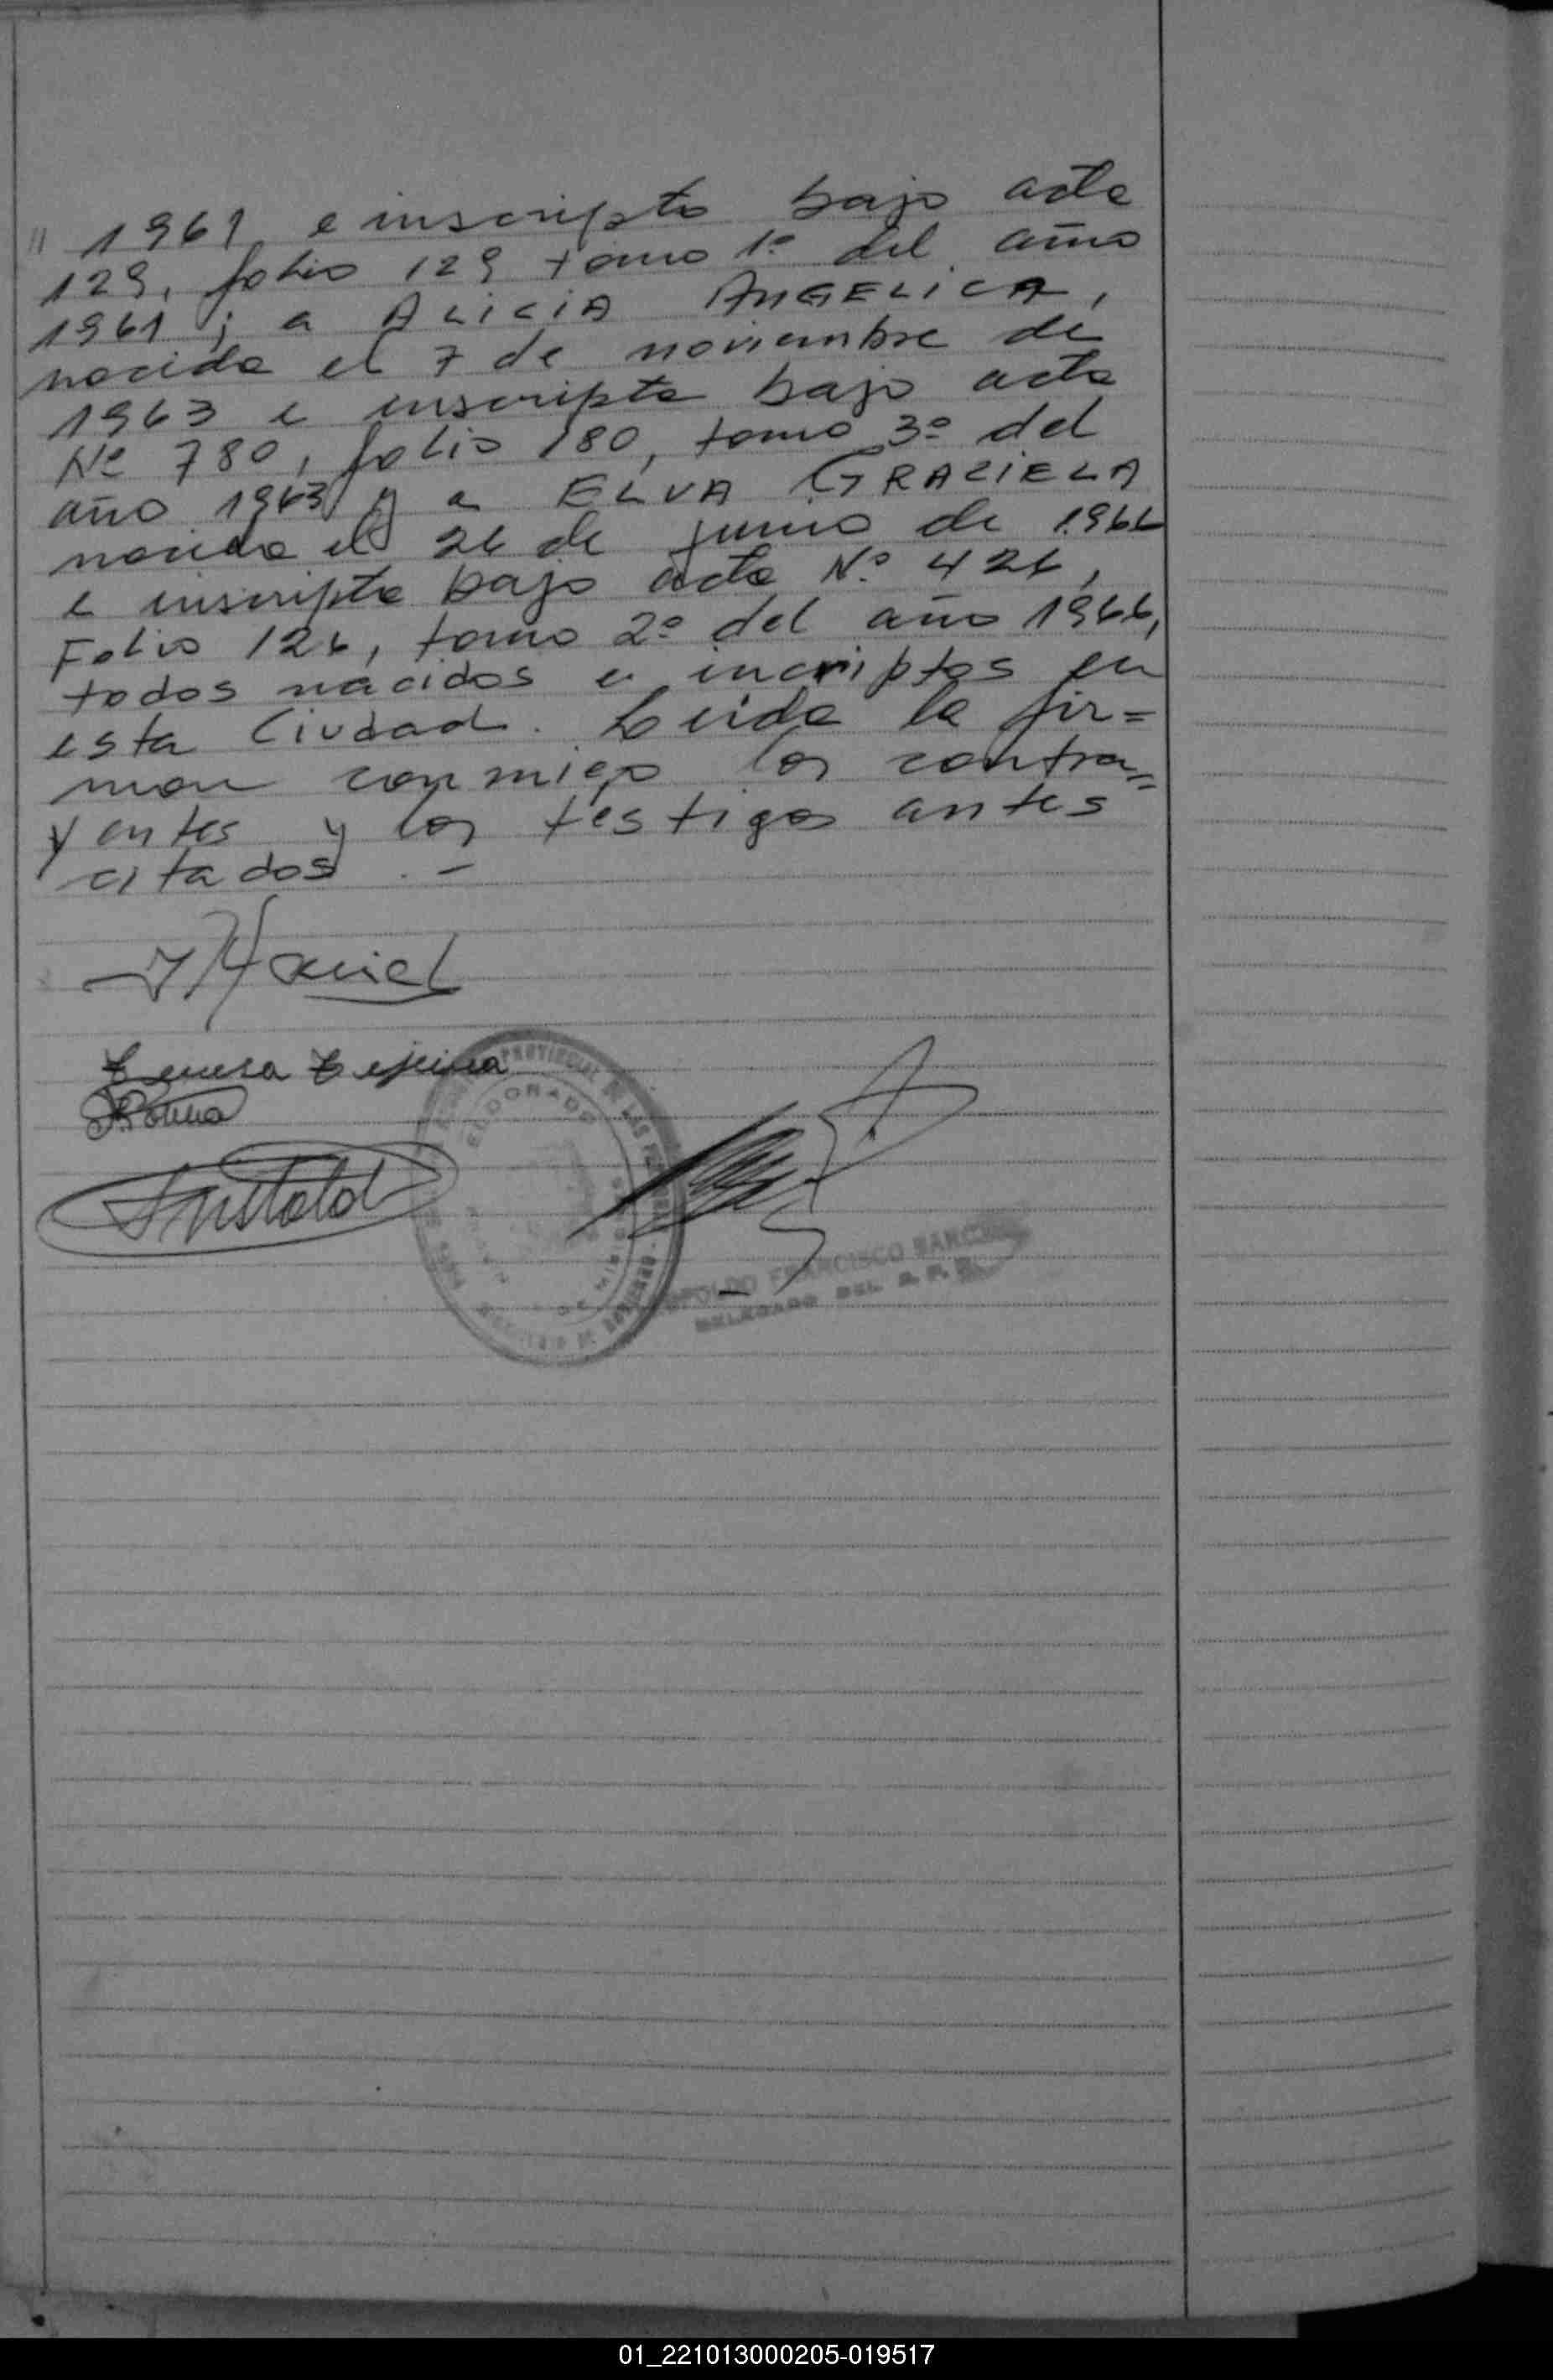 " 1961 e inscripto bajo acta
129, folio 129 tomo 1º del año
1961; a ALICIA ANGELICA,
nacida el 7 de noviembre de
1963 e inscripta bajo acta
Nº 780, folio 180, tomo 3º del
año 1963 y a ELVA GRACIELA
nacida el 26 de junio de 1966
e inscripta bajo acta Nº 426,
Folio 126, tomo 2º del año 1966,
todos nacidos e incriptos en
esta Ciudad. Leida la fir=
man conmigo los contra=
yentes y los testigos antes
citados .-
ELDORADO
FRANCISCO
DELEGADO DEL R. P. P.
01_221013000205-019517